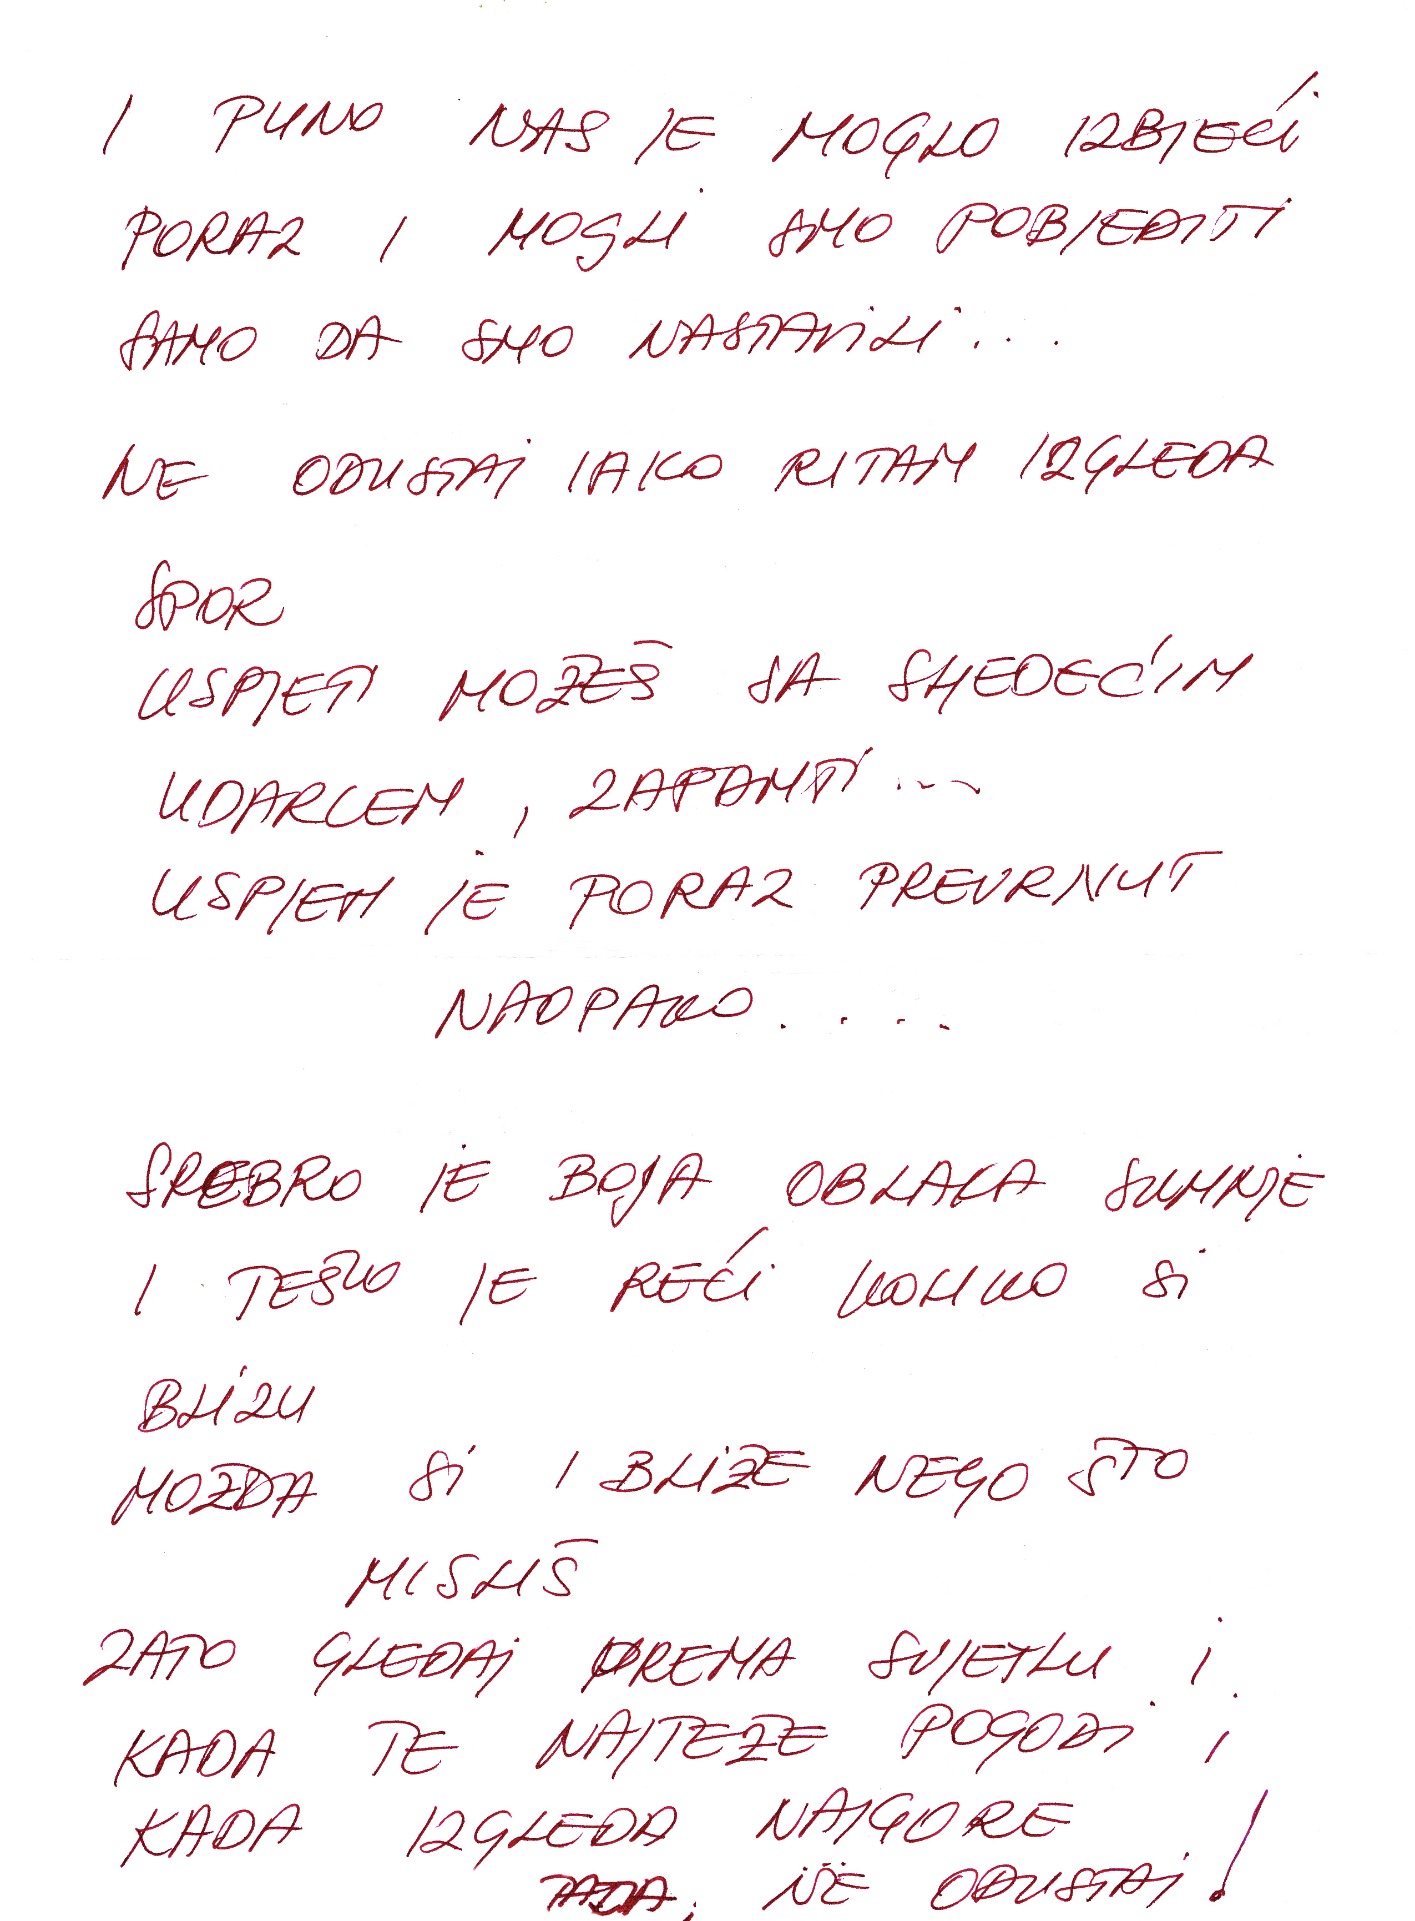 I PUNO NAS JE MOGLO IZBJEĆI
PORAZ I MOGLI SMO POBJEDITI
SAMO DA SMO NASTAVILI...
NE ODUSTAJ IAKO RITAM IZGLEDA
SPOR
USPJETI MOŽEŠ SA SLJEDEĆIM
UDARCEM, ZAPAMTI...
USPJEH JE PORAZ PREVRNUT
NAOPAKO....
SREBRO JE BOJA OBLAKA SUMNJE
I TEŠKO JE REĆI KOLIKO SI
BLIZU
MOŽDA SI I BLIŽE NEGO ŠTO
MISLIŠ
ZATO GLEDAJ PREMA SVJETLU I
KADA TE NAJTEŽE POGODI;
KADA IZGLEDA NAJGORE
TADA, NE ODUSTAJ!